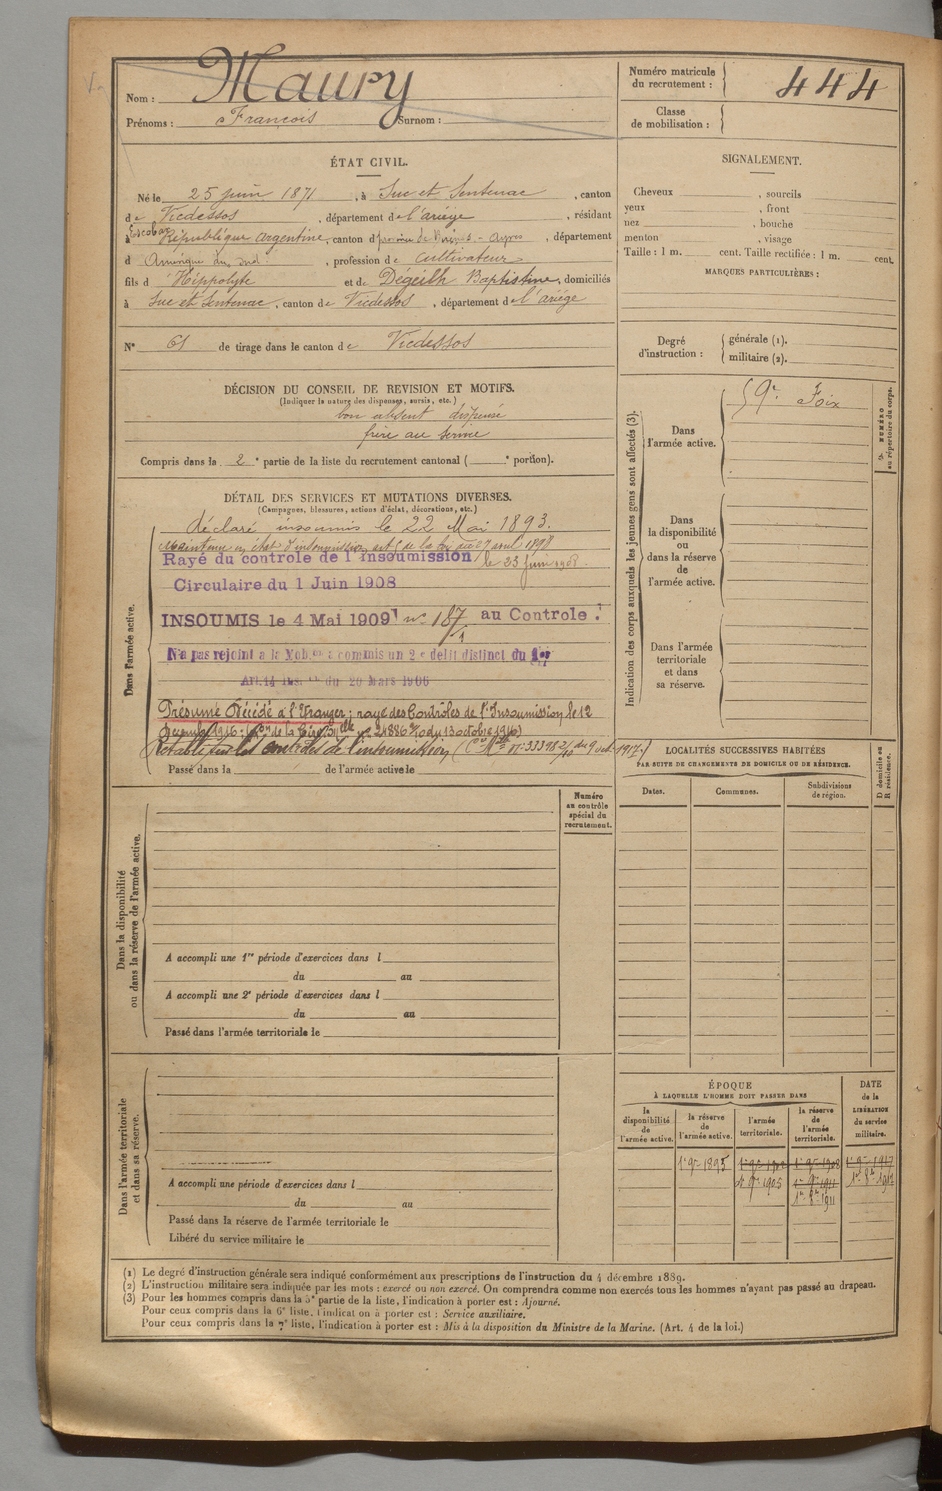 Nom : Maury
Prénoms : François Surnom :
Numéro matricule du recrutement : 444
Classe de mobilisation :
ÉTAT CIVIL.
Né le 25 juin 1871, à Suc et Sentenac, canton
de Vicdessos, département de l'ariège, résidant
à Escobar République argentine, canton d province de Buenos-Ayres, département
d Amérique du Sud, profession de Cultivateur
fils d'Hippolyte et de Dégeilh Baptistine, domiciliés
à Suc et Sentenac, canton de Vicdessos, département de l'ariège
N° 61 de tirage dans le canton de Vicdessos
DÉCISION DU CONSEIL DE REVISION ET MOTIFS.
(Indiquer la nature des dispenses, sursis, etc.)
bon absent dispensé
frère au service
Compris dans la 2e partie de la liste du recrutement cantonal ( e portion).
DÉTAIL DES SERVICES ET MUTATIONS DIVERSES.
(Campagnes, blessures, actions d'éclat, décorations, etc.)
Dans l'armée active.
déclaré insoumis le 22 Mai 1893.
Maintenu en état d'insoumission art de la loi du 27 avril 1898
Rayé du controle de l'Insoumission le 23 juin 1908.
Circulaire du 1 Juin 1908
INSOUMIS le 4 Mai 1909 n° 187 au Controle.
N'a pas rejoint a la Mob.on : commis un 2e delit distinct du 1er
Art.14 Ins.on du 20 Mars 1906
Présumé Décédé à l'Etranger ; rayé des Contrôles de l'Insoumission le 12
décembre 1916 (Con de la Circ. Mlle n° 24886 2/10 du 13 octobre 1916)
Rétabli sur les contrôles de l'insoumission (Cre Mlle n° 33398 2/10 du 9 oct. 1917)
Passé dans la de l'armée active le
Numéro au contrôle spécial du recrutement.
Dans la disponibilité ou dans la réserve de l'armée active.
A accompli une 1re période d'exercices dans l
du au
A accompli une 2e période d'exercices dans l
du au
Passé dans l'armée territoriale le
Dans l'armée territoriale et dans sa réserve.
A accompli une période d'exercices dans l
du au
Passé dans la réserve de l'armée territoriale le
Libéré du service militaire le
SIGNALEMENT.
Cheveux , sourcils
yeux , front
nez , bouche
menton , visage
Taille : 1 m. cent. Taille rectifiée : 1 m. cent.
MARQUES PARTICULIÈRES :
Degré d'instruction : générale (1).
militaire (2).
Indication des corps auxquels les jeunes gens sont affectés (3).
NUMÉRO au répertoire du corps.
Dans l'armée active.
59e Foix
Dans la disponibilité ou dans la réserve de l'armée active.
Dans l'armée territoriale et dans sa réserve.
LOCALITÉS SUCCESSIVES HABITÉES
PAR SUITE DE CHANGEMENTS DE DOMICILE OU DE RÉSIDENCE.
D domicile ou R résidence.
Dates. Communes. Subdivisions de région.
ÉPOQUE
À LAQUELLE L'HOMME DOIT PASSER DANS
DATE de la LIBÉRATION du service militaire.
la disponibilité de l'armée active. la réserve de l'armée active. l'armée territoriale. la réserve de l'armée territoriale.
1er 9re 1895 1er 9re 1902 1er 9re 1908 1er 9re 1917
1er 9re 1905 1er 9re 1911 1er 8re 1917
1er 8re 1911
(1) Le degré d'instruction générale sera indiqué conformément aux prescriptions de l'instruction du 4 décembre 1889.
(2) L'instruction militaire sera indiquée par les mots : exercé ou non exercé. On comprendra comme non exercés tous les hommes n'ayant pas passé au drapeau.
(3) Pour les hommes compris dans la 5e partie de la liste, l'indication à porter est : Ajourné.
Pour ceux compris dans la 6e liste, l'indication à porter est : Service auxiliaire.
Pour ceux compris dans la 7e liste, l'indication à porter est : Mis à la disposition du Ministre de la Marine. (Art. 4 de la loi.)